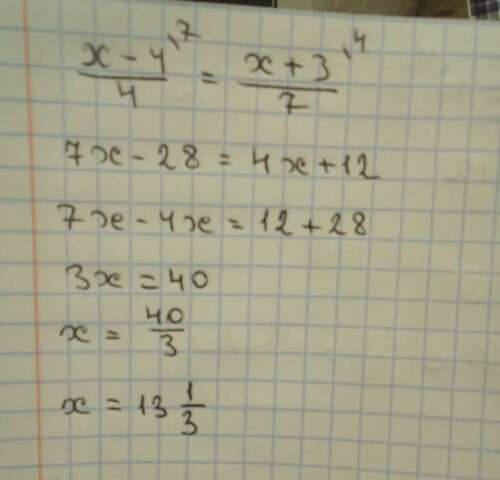 (x - 4)/4 ^7 = (x + 3)/7 ^4
7x - 28 = 4x + 12
7x - 4x = 12 + 28
3x = 40
x = 40/3
x = 13 1/3